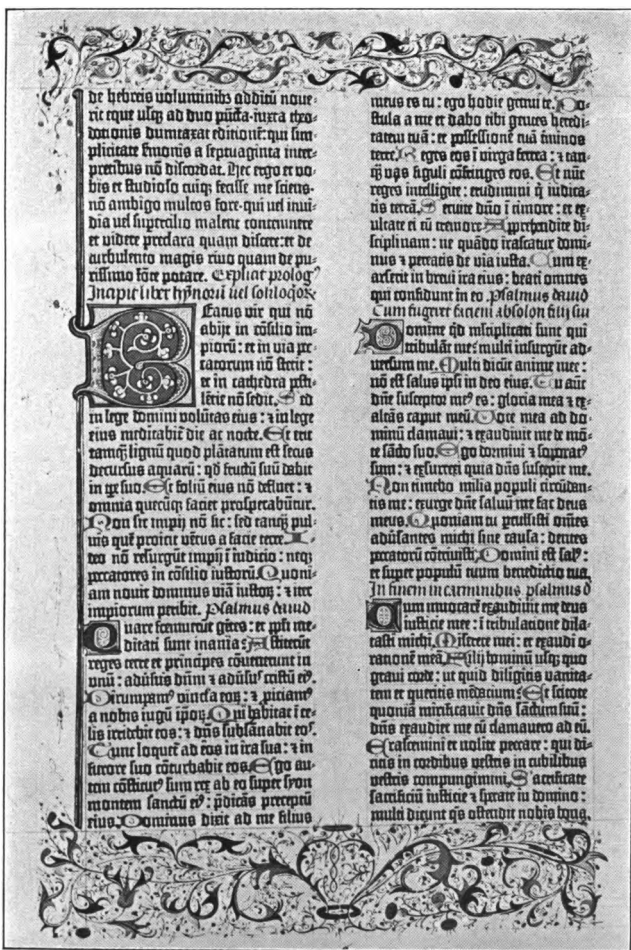 de hebreis uoluminibꝰ additū noue⸗
rit eque usqꝫ ad duo pūcta·iuxta theo⸗
dotionis dumtaxat editionē: qui sim⸗
plicitate ẜmonis a septuaginta inter⸗
pretibus nō discordat. Hec ergo et uo⸗
bis et studioso cuiqꝫ fecisse me sciens·
nō ambigo multos fore·qui uel inui⸗
dia uel supercilio malent contemnere
et videre preclara quam discere: et de
turbulento magis riuo quam de pu⸗
rissimo fōte potare. Explicit prologꝰ
Incipit liber hȳnoꝝ uel soliloqoꝝ
Beatus vir qui nō
abijt in cōsilio im⸗
piorū: et in via pec⸗
catorum nō stetit:
et in cathedra pesti⸗
lētie nō sedit. Sed
in lege domini volūtas eius: ⁊ in lege
eius meditabit̄ die ac nocte. Et erit
tamqꝫ lignū quod plātatum est secus
decursus aquarū: qd̄ fructū suū dabit
in tꝑe suo. Et foliū eius nō defluet: ⁊
omnia quecūqꝫ faciet prosperabūtur.
Non sic impij nō sic: sed tanqꝫ pul⸗
uis quē proicit vētus a facie terre. I⸗
deo nō resurgūt impij ī iudicio: neqꝫ
peccatores in cōsilio iustorū. Quoni⸗
am nouit dominus viā iustoꝝ: ⁊ iter
impiorum peribit. Psalmus dauid
Quare fremuerūt gētes: et ppli me⸗
ditati sunt inania: Astiterūt
reges terre et principes cōuenerunt in
vnū: aduersus dn̄m ⁊ aduersꝰ cristū eiꝰ.
Dirumpamꝰ vincla eoꝝ: ⁊ ꝓiciamꝰ
a nobis iugū ipōꝝ. Qui habitat ī ce⸗
lis irridebit eos: ⁊ dn̄s subsannabit eoˢ.
Tunc loquet̄ ad eos in ira sua: ⁊ in
furore suo cōturbabit eos. Ego au⸗
tem cōstitutꝰ sum rex ab eo super syon
montem sanctū eiꝰ: p̄dicās preceptū
eius. Dominus dixit ad me filius
meus es tu: ego hodie genui te. Po⸗
stula a me et dabo tibi gentes heredi⸗
tatem tuā: et possessionē tuā t̄minos
terre. Reges eos ī virga ferrea: ⁊ tan⸗
qꝫ vas figuli cōfringes eos. Et nūc
reges intelligite: erudimini qͥ iudica⸗
tis terrā. Seruite dn̄o ī timore: et ex⸗
ultate ei cū tremore. Apprehendite di⸗
sciplinam: ne quādo irascatur domi⸗
nus ⁊ pereatis de via iusta. Cum ex⸗
arserit in breui ira eius: beati omnes
qui confidunt in eo. Psalmus dauid
Cum fugeret faciem absolon filij sui
Domine qd̄ mltiplicati sunt qui
tribulāt me: multi insurgūt ad⸗
uersum me. Multi dicūt anime mee:
nō est salus ipsi in deo eius. Tu aūt
dn̄e susceptor meꝰ es: gloria mea ⁊ ex⸗
altās caput meū. Voce mea ad do⸗
minū clamaui: ⁊ exaudiuit me de mō⸗
te sācto suo. Ego dormiui ⁊ soporatꝰ
sum: ⁊ exsurrexi quia dn̄s suscepit me.
Non timebo milia populi circūdan⸗
tis me: exurge dn̄e saluū me fac deus
meus. Quoniam tu percussisti om̄es
aduersantes michi sine causa: dentes
peccatorū cōtriuisti. Domini est salꝰ:
et super populū tuum benedictio tua.
In finem in carminibus psalmus d
Cum inuocarē exaudiuit me deus
iusticie mee: ī tribulatione dila⸗
tasti michi. Miserere mei: et exaudi o⸗
rationē meā. Filij hominū usqꝫ quo
graui corde: ut quid diligitis vanita⸗
tem et queritis mēdacium: Et scitote
quoniā mirificauit dn̄s sanctum suū:
dn̄s exaudiet me cū clamauero ad eū.
Irascemini et nolite peccare: qui di⸗
citis in cordibus vestris in cubilibus
vestris compungimini. Sacrificate
sacrificiū iusticie ⁊ sperate in domino:
multi dicunt qͥs ostendit nobis bona.